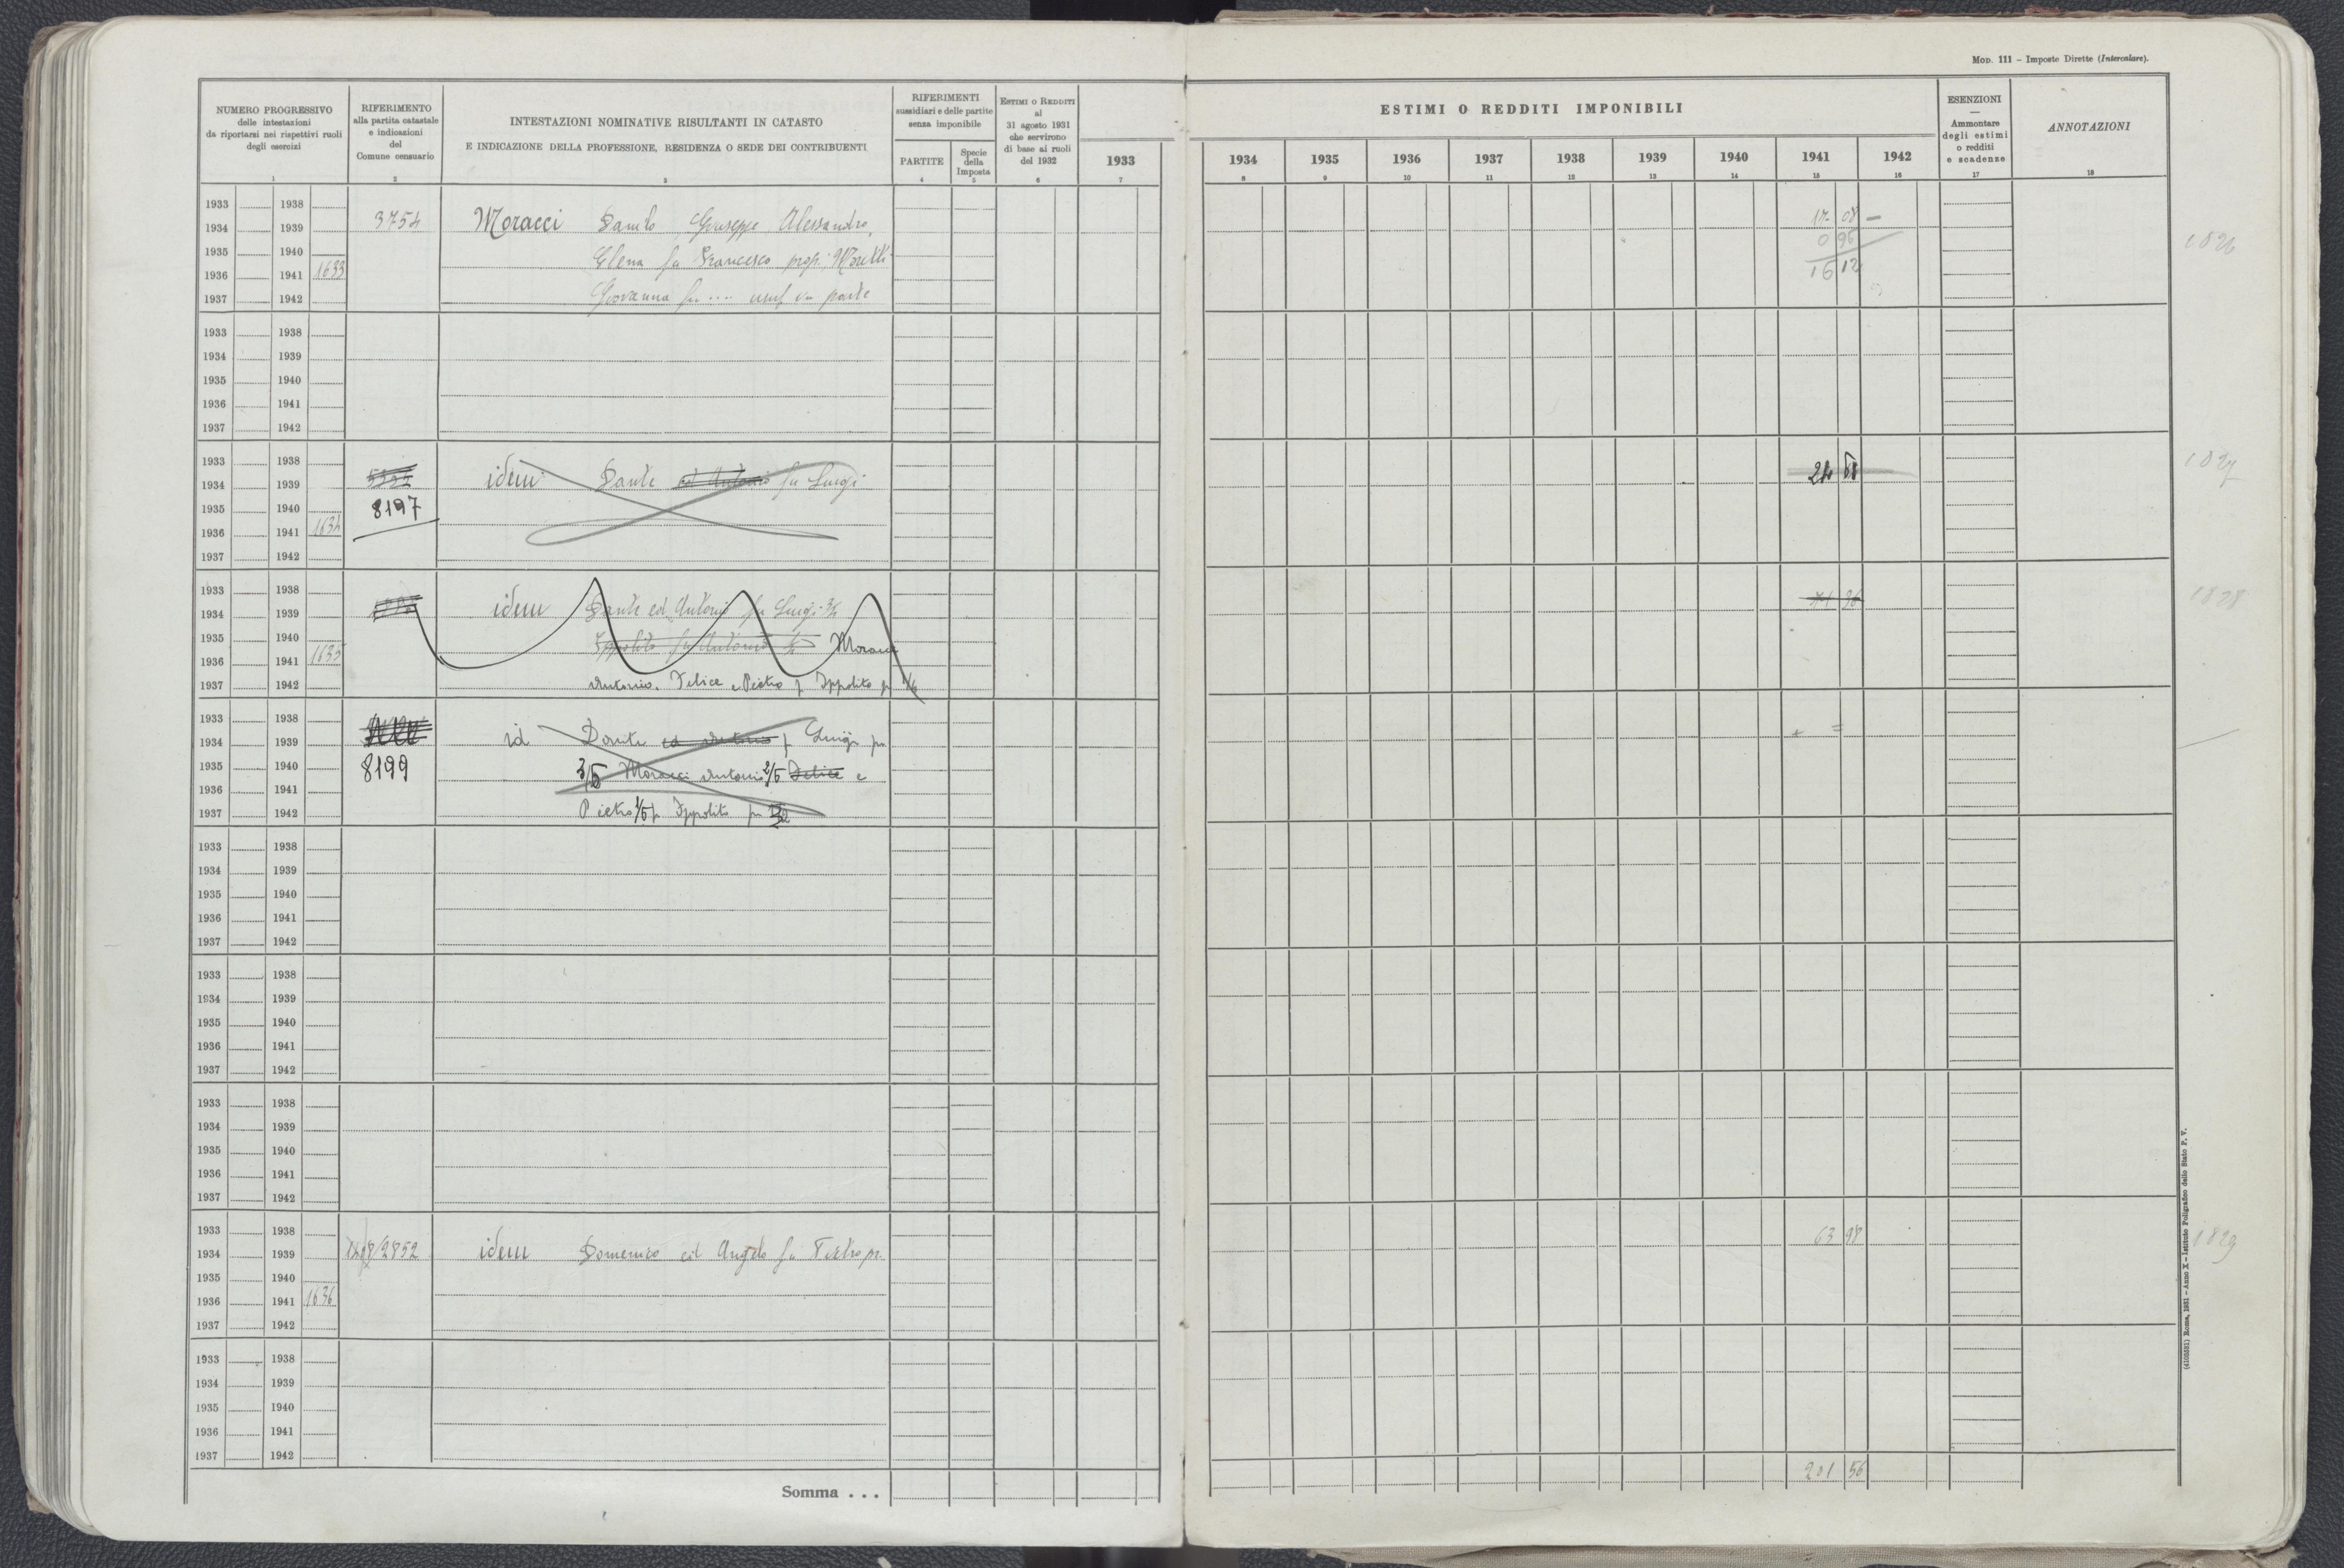 Mod. 111 – Imposte Dirette (Intercalare).
NUMERO PROGRESSIVO
delle intestazioni
da riportarsi nei rispettivi ruoli
degli esercizi
1
RIFERIMENTO
alla partita catastale
e indicazioni
del
Comune censuario
2
INTESTAZIONI NOMINATIVE RISULTANTI IN CATASTO
E INDICAZIONE DELLA PROFESSIONE, RESIDENZA O SEDE DEI CONTRIBUENTI
3
RIFERIMENTI
sussidiari e delle partite
senza imponibile
PARTITE
4
Specie
della
Imposta
5
ESTIMI O REDDITI
al
31 agosto 1931
che servirono
di base ai ruoli
del 1932
6
ESTIMI O REDDITI IMPONIBILI
1933 1934 1935 1936 1937 1938 1939 1940 1941 1942
7 8 9 10 11 12 13 14 15 16
ESENZIONI
—
Ammontare
degli estimi
o redditi
e scadenze
17
ANNOTAZIONI
18
1933 1938
1934 1939 3754 Moracci Danilo Giuseppe Alessandro, 17 08 –
1935 1940 Elena fu Francesco prop. Moretti 0 96 1826
1936 1941 1633 16 12
1937 1942 Giovanna fu .... usuf in parte
1933 1938
1934 1939
1935 1940
1936 1941
1937 1942
1933 1938
1934 1939 idem Dante ed Antonio fu Luigi 24 1827
1935 1940 8197
1936 1941 1634
1937 1942
1933 1938
1934 1939 idem Dante ed Antonio fu Luigi 1828
1935 1940 Ippolito fu Antonio Moracci
1936 1941 1635
1937 1942 Antonio, Felice e Pietro f Ippolito
1933 1938
1934 1939 id Dante ed Antonio f Luigi pr
1935 1940 8199 3/5 Moracci Antonio 2/5 Felice e
1936 1941
1937 1942 Pietro 1/5 f Ippolito pr
1933 1938
1934 1939
1935 1940
1936 1941
1937 1942
1933 1938
1934 1939
1935 1940
1936 1941
1937 1942
1933 1938
1934 1939
1935 1940
1936 1941
1937 1942
1933 1938
1934 1939 /2852 idem Domenico ed Angelo fu Pietro pr. 63 98 1829
1935 1940
1936 1941 1636
1937 1942
1933 1938
1934 1939
1935 1940
1936 1941
1937 1942
Somma . . . 201 56
(4105531) Roma, 1931 – Anno X – Istituto Poligrafico dello Stato P. V.